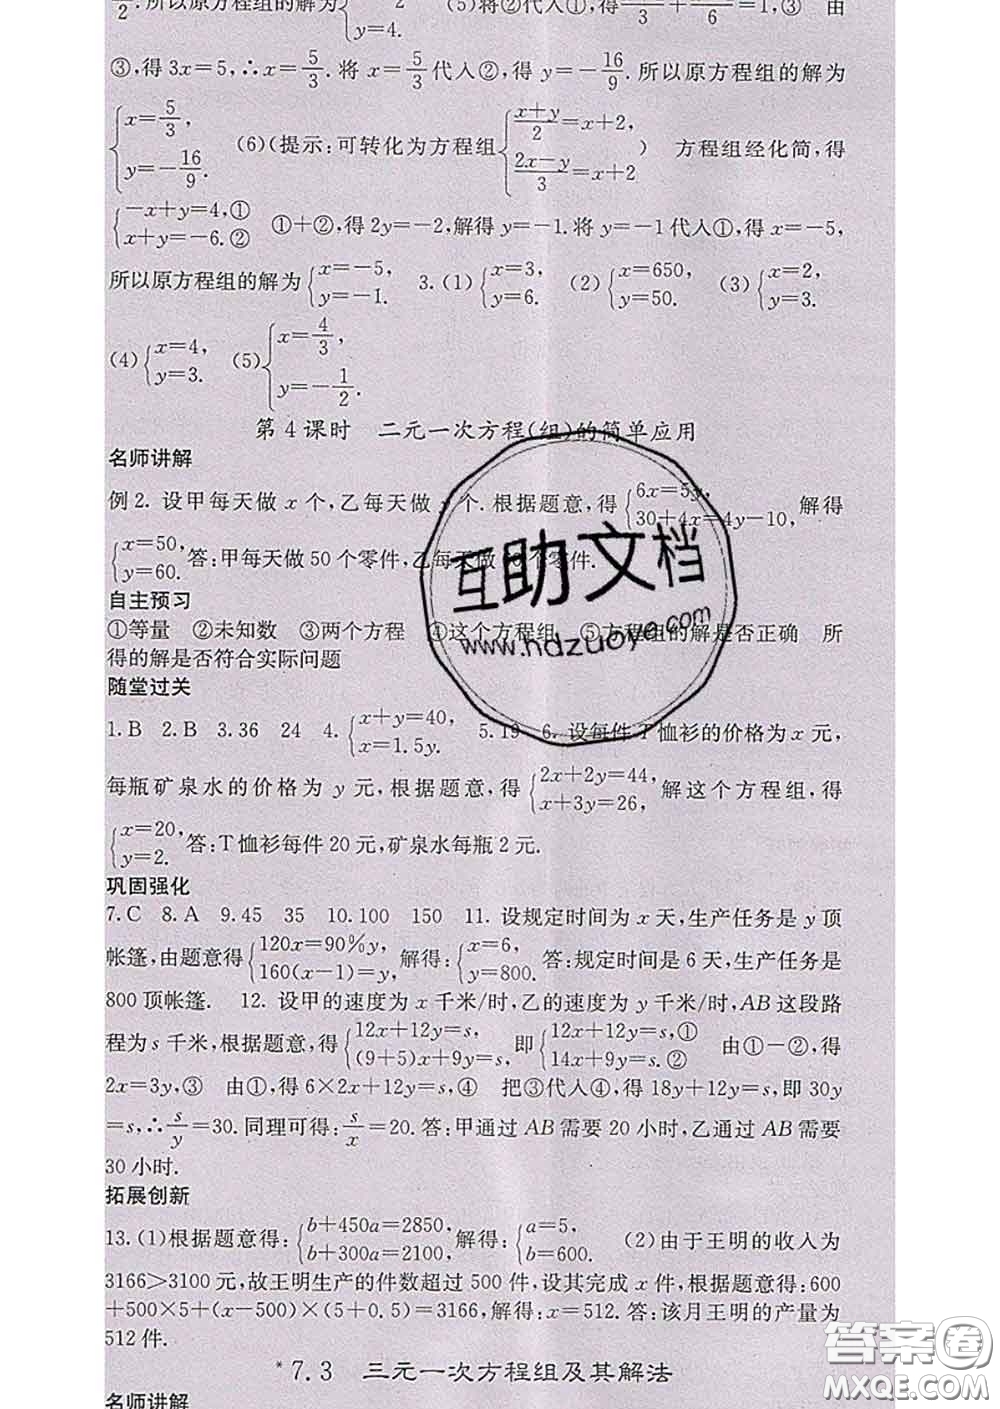 2 .所以原方程组的解为 2 (5)将②代入①,得 3 + 6 =1,③ 由
y=4.
③,得 3x=5,∴x=5/3.将 x=5/3代入②,得 y=-16/9.所以原方程组的解为
{x=5/3, y=-16/9. (6)(提示:可转化为方程组{(x+y)/2=x+2, (2x-y)/3=x+2) 方程组经化简,得
{-x+y=4,① x+y=-6.② ①+②,得 2y=-2,解得 y=-1.将 y=-1代入①,得 x=-5,
所以原方程组的解为{x=-5, y=-1. 3.(1){x=3, y=6. (2){x=650, y=50. (3){x=2, y=3.
(4){x=4, y=3. (5){x=4/3, y=-1/2.
第 4 课时 二元一次方程(组)的简单应用
名师讲解
例 2. 设甲每天做 x 个,乙每天做 y 个.根据题意,得{6x=5y, 30+4x=4y-10, 解得
{x=50, y=60. 答:甲每天做 50 个零件,乙每天做 60 个零件.
自主预习
①等量 ②未知数 ③两个方程 ④这个方程组 ⑤方程组的解是否正确 所
得的解是否符合实际问题
随堂过关
1.B 2.B 3.36 24 4.{x+y=40, x=1.5y. 5.19 6. 设每件 T 恤衫的价格为 x 元,
每瓶矿泉水的价格为 y 元,根据题意,得{2x+2y=44, x+3y=26, 解这个方程组,得
{x=20, y=2. 答:T恤衫每件 20 元,矿泉水每瓶 2 元.
巩固强化
7.C 8.A 9.45 35 10.100 150 11. 设规定时间为 x 天,生产任务是 y 顶
帐篷,由题意得{120x=90%y, 160(x-1)=y, 解得:{x=6, y=800. 答:规定时间是 6 天,生产任务是
800 顶帐篷. 12. 设甲的速度为 x 千米/时,乙的速度为 y 千米/时,AB 这段路
程为 s 千米,根据题意,得{12x+12y=s, (9+5)x+9y=s, 即{12x+12y=s,① 14x+9y=s.② 由①-②,得
2x=3y,③ 由①,得 6×2x+12y=s,④ 把③代入④,得 18y+12y=s,即 30y
=s,∴s/y=30.同理可得:s/x=20.答:甲通过 AB 需要 20 小时,乙通过 AB 需要
30 小时.
拓展创新
13.(1)根据题意得:{b+450a=2850, b+300a=2100, 解得:{a=5, b=600. (2)由于王明的收入为
3166>3100 元,故王明生产的件数超过 500 件,设其完成 x 件,根据题意得:600
+500×5+(x-500)×(5+0.5)=3166,解得:x=512.答:该月王明的产量为
512 件.
*7.3 三元一次方程组及其解法
名师讲解
互助文档
www.hdzuoye.com
答案圈
MXQE.COM